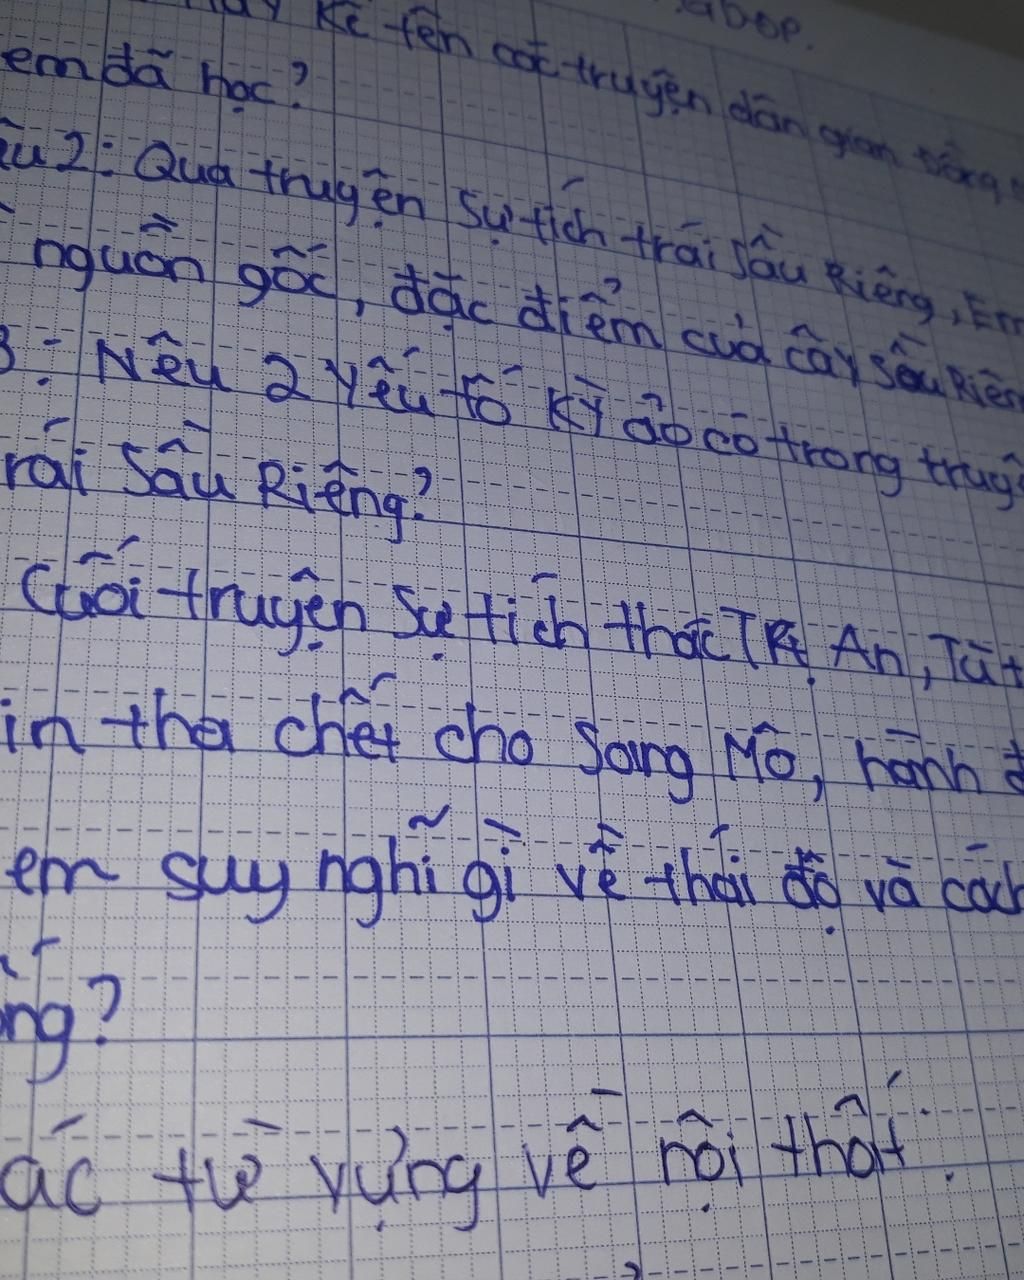 Kể tên các truyện dân gian
em đã học?
2: Qua truyện Sự tích trái Sầu Riêng, Em
nguồn gốc, đặc điểm của cây Sầu Riêng
3: Nêu 2 yếu tố kỳ ảo có trong truyện
Sầu Riêng?
Cuối truyện Sự tích thác TRị An,
tha chết cho Sang Mô, hành
em suy nghĩ gì về thái độ và cách
từ vựng về nội thất.